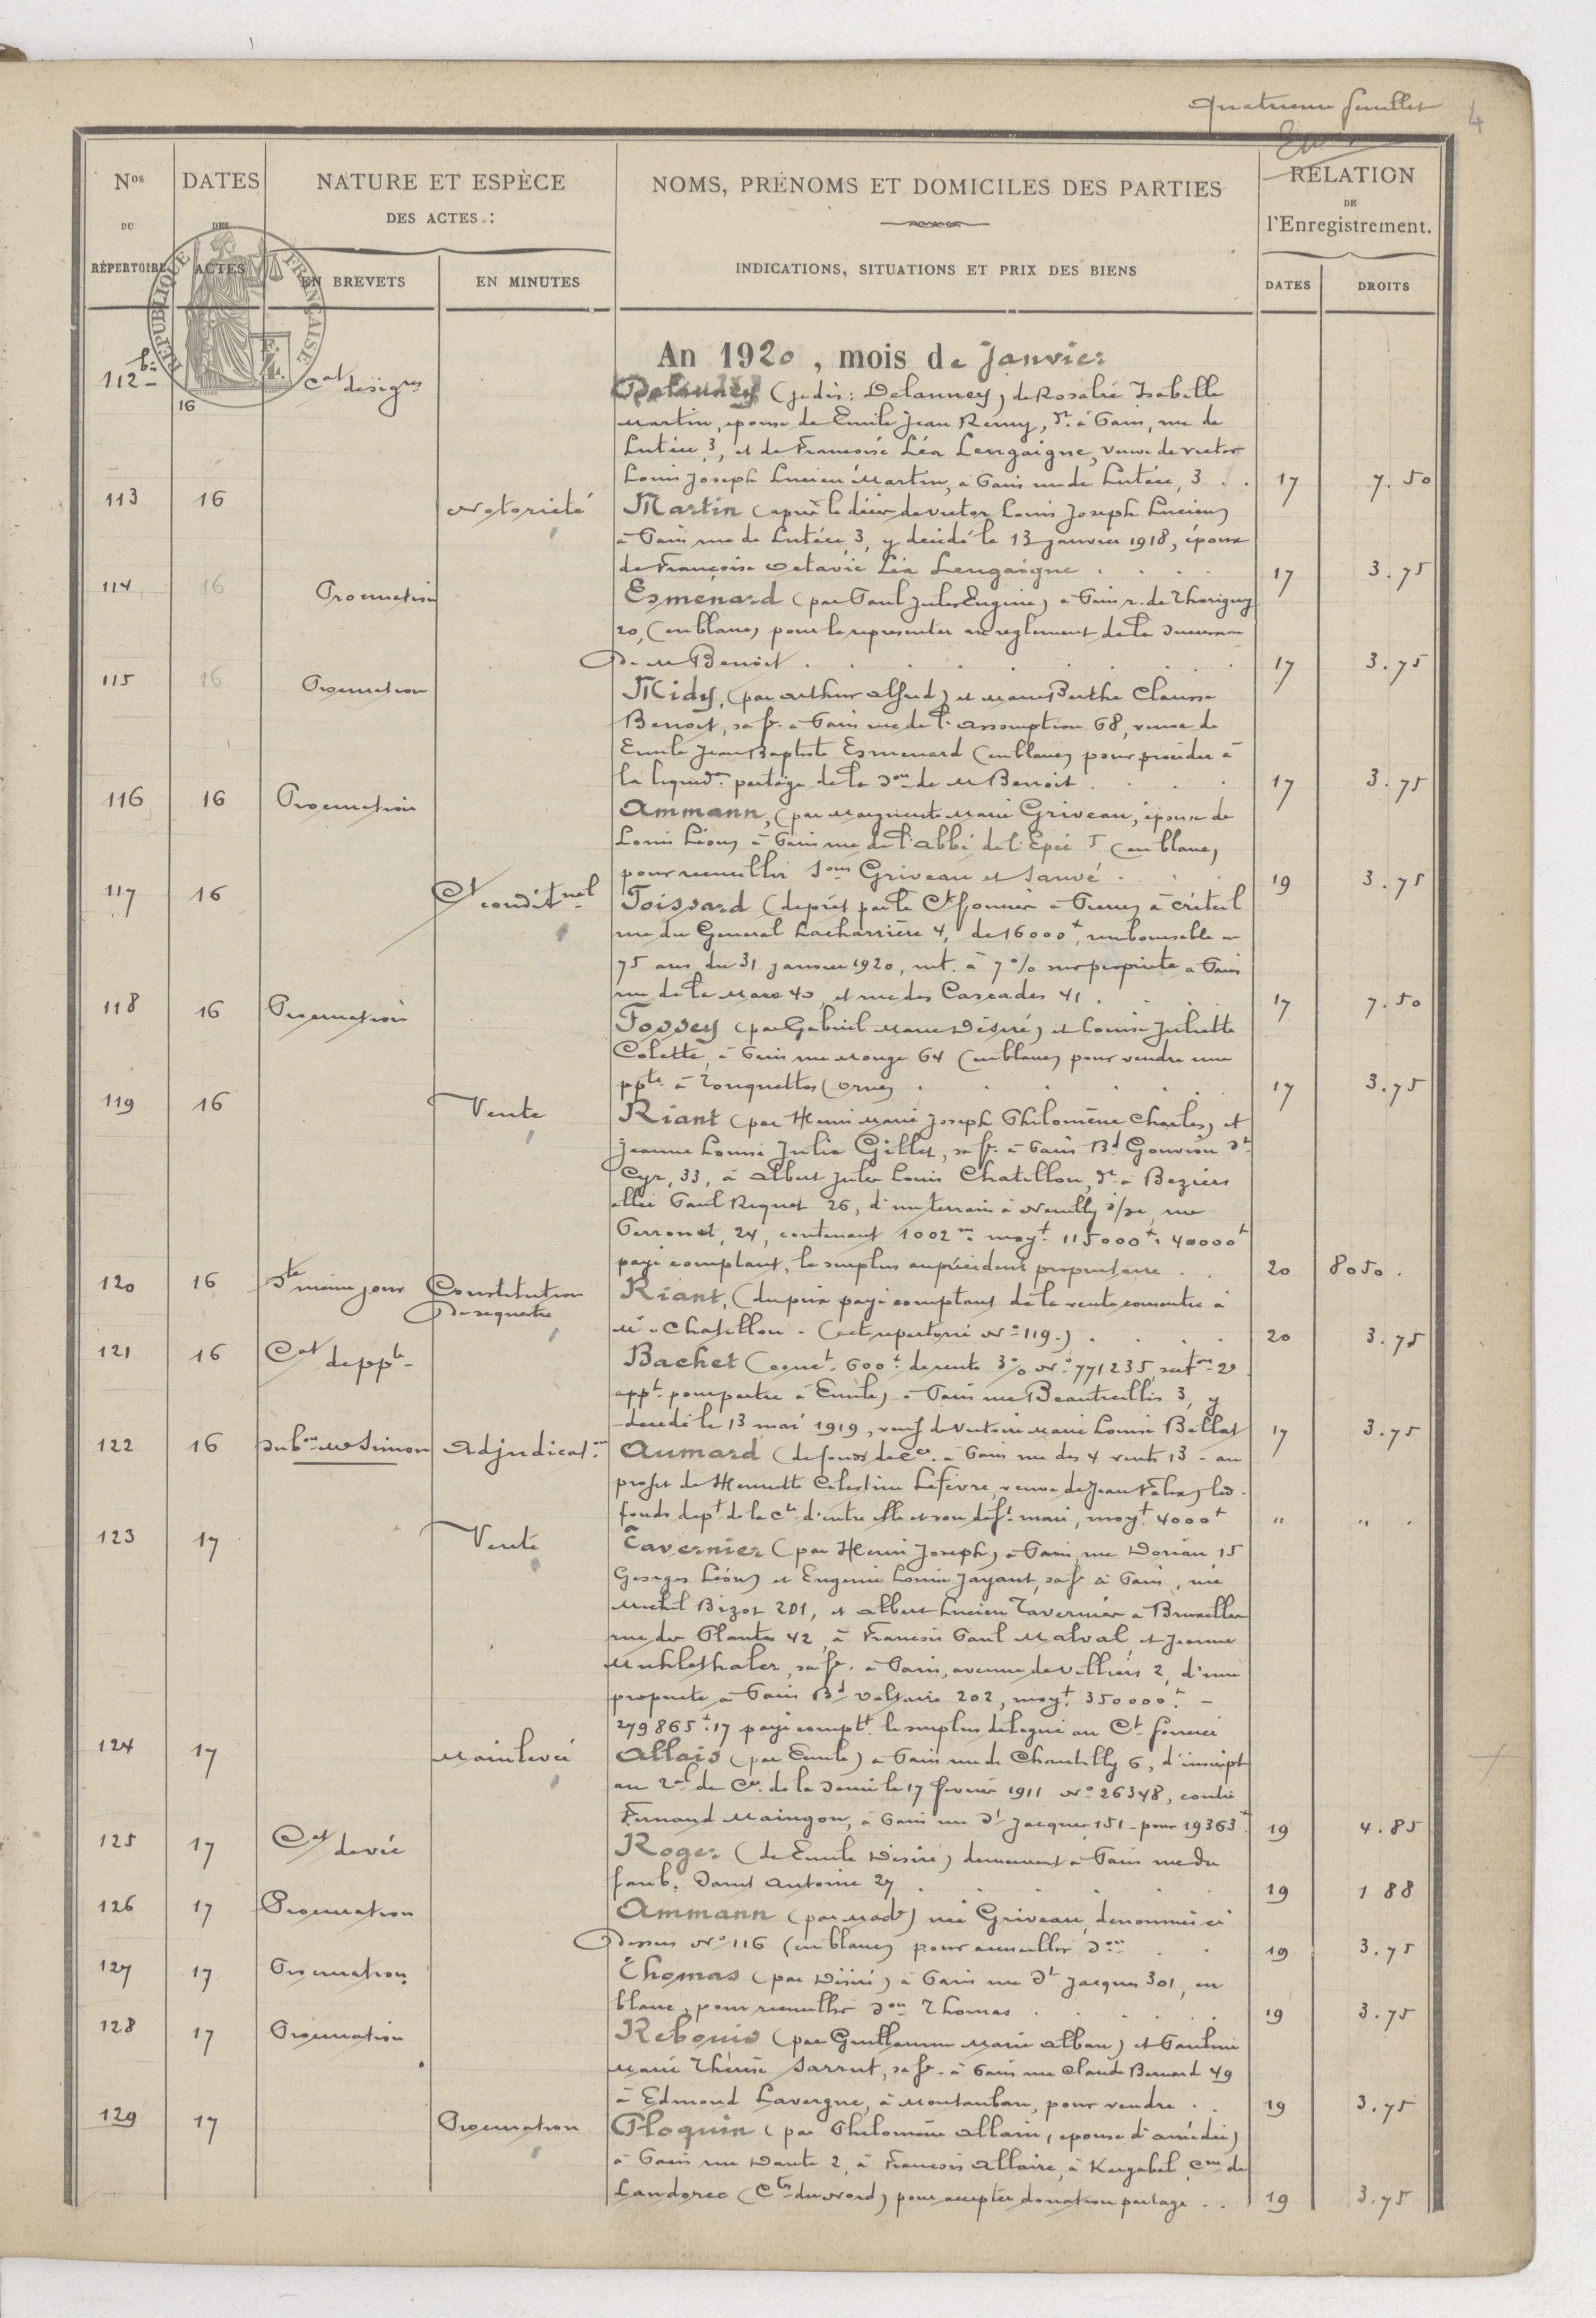 Quatrieme feuillet
4
Nos DU RÉPERTOIRE
DATES DES ACTES
NATURE ET ESPÈCE
DES ACTES :
EN BREVETS
EN MINUTES
NOMS, PRÉNOMS ET DOMICILES DES PARTIES
INDICATIONS, SITUATIONS ET PRIX DES BIENS
RELATION
DE
l'Enregistrement.
DATES
DROITS
RÉPUBLIQUE FRANÇAISE
An 1920, mois de Janvier
112 bis 16 Cat
Delanney (je dis : Delanney) de Rosalie Isabelle
Martin, epouse de Emile Jean Remy, dt à Paris, rue de
Lutèce, 3, et de Francoise Léa Lengaigne, veuve de Victor
Louis Joseph Lucien Martin, à Paris rue de Lutèce, 3 . . 17 7.50
113 16 Notoriété Martin (après le décès de Victor Louis Joseph Lucien)
à Paris rue de Lutèce, 3, y décédé le 13 janvier 1918, époux
de Françoise Octavie Léa Lengaigne . . . . 17 3.75
114 16 Procuration Esmenard (par Paul Jules Eugène) à Paris r. de Thorigny
20, (en blanc) pour le representer au reglement de la succession
de M Benoit . . . . 17 3.75
115 16 Procuration Midy, (par Arthur Alfred) et Marie Berthe Clarisse
Benoit, sa fe à Paris rue de l'Assomption 68, veuve de
Emile Jean Baptiste Esmenard (en blanc) pour procéder à
la liquidon partage de la Son de M Benoit . . . 17 3.75
116 16 Procuration Ammann, (par Marguerite Marie Griveau, épouse de
Louis Léon) à Paris rue de l'Abbé de l'Epée 5 (en blanc)
pour recueillir Sons Griveau et Sauvé . . . 19 3.75
117 16 Ct conditnel Toissard (de prêt par le Ct foncier à Pierre) à Créteil
rue du General Lacharrière 4, de 16000f, remboursable en
75 ans du 31 janvier 1920, int. à 7% sur propriete à Paris
rue de la Mare 40, et rue des Cascades 41 . . . 17 7.50
118 16 Procuration Fossey (par Gabriel Marie Désiré) et Louise Juliette
Colette, à Paris rue Monge 64 (en blanc) pour vendre une
ppté à Touquettes (Orne) . . . . 17 3.75
119 16 Vente Riant (par Henri Marie Joseph Philomène Charles) et
Jeanne Louise Julie Gillet, sa fe à Paris Bd Gouvion St
Cyr, 33, à Albert Jules Louis Chatillon, dt à Beziers
allée Paul Riquet 26, d'un terrain à Neuilly s/se, rue
Perronet, 24, contenant 1002 m. moyt 115000f. 40000f
payé comptant, le surplus au précédent propriétaire . . 20 8050.
120 16 Ste même jour Constitution
de sequestre
Riant, (du prix payé comptant de la vente consentie à
Mr Chatillon - (acte repertorié No 119.) . . . . 20 3.75
121 16 Cat de ppté Bachet (concnt 600f de rente 3% No 771235, secton 2o
appt pour partie à Emile) à Paris rue Beautreillis 3, y
décédé le 13 mai 1919, veuf de Victoire Marie Louise Bellat 17 3.75
122 16 Subon Me Simon Adjudicaton Aumard (de fonds de Cce à Paris rue des 4 vents 13 - au
profit de Henriette Celestine Lefèvre, veuve de Jean Felix) led.
fonds dépt de la Cté d'entre elle et son deft mari, moyt 4000f " " .
123 17 Vente Tavernier (par Henri Joseph) à Paris, rue Dorian 15
Georges Léon) et Eugenie Louise Jayant, sa fe à Paris, rue
Michel Bizot 201, et Albert Lucien Tavernier à Bruxelles
rue des Plantes 42, à Francois Paul Malval et Jeanne
Muhlethaler, sa fe. à Paris, avenue de Villiers 2, d'une
propriete à Paris Bd Voltaire 202, moyt 350000f -
279865f.17 payé comptt le surplus délégué au Ct foncier
124 17 Mainlevée Allais (par Emile) à Paris rue de Chantilly 6, d'inscript
au 2d de Cs. de la Seine le 17 fevrier 1911 No 26348, contre
Fernand Maingon, à Paris rue St Jacques 151 - pour 19363f 19 4.85
125 17 Cat de vie Roger (de Emile Désiré) demeurant à Paris rue du
faub. Saint Antoine 27 . . . . 19 1 88
126 17 Procuration Ammann (par Made) née Griveau, denommée ci
dessus No 116 (en blanc) pour recueillir Son . . 19 3.75
127 17 Procuration Thomas (par Désiré) à Paris rue St Jacques 301, en
blanc, pour recueillir Son Thomas . . . . 19 3.75
128 17 Procuration Rebouis (par Guillaume Marie Alban) et Pauline
Marie Thérèse Sarrut, sa fe à Paris rue Claude Bernard 49
à Edmond Lavergne, à Montauban, pour vendre . . 19 3.75
129 17 Procuration Ploquin (par Philomène Allain, epouse d'Amédée)
à Paris rue Dante 2, à Francois Allaire, à Kergabel, Cne de
Landorec (Ctes du Nord) pour accepter donation partage . . 19 3.75